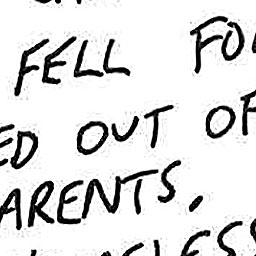 FELL FO
ED OUT OF
ARENTS,
LESS